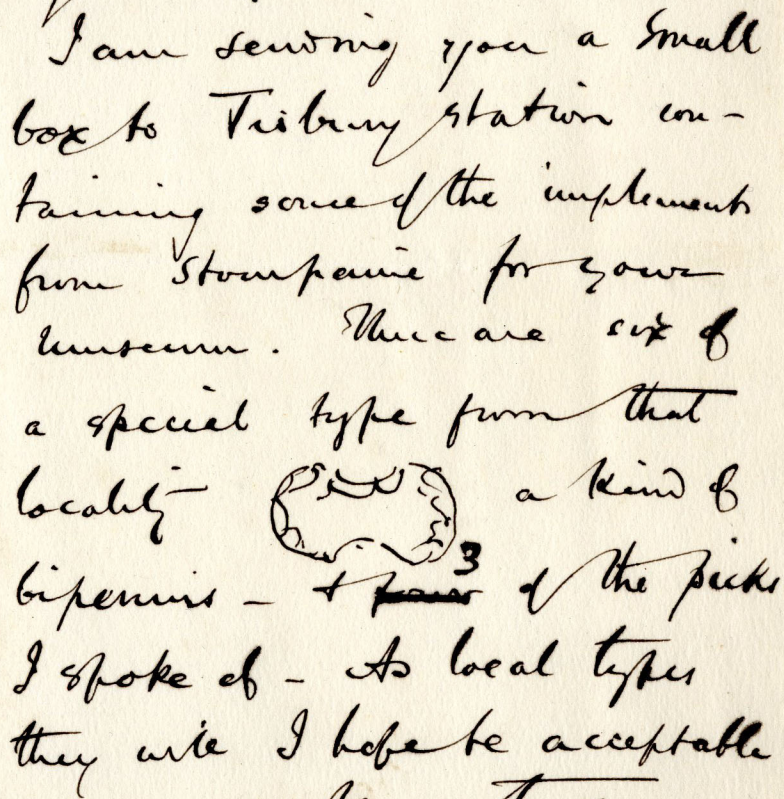 I am sending you a small
box to Tisbury station con-
taining some of the implements
from Stourpaine for your
museum. There are six of
a special type from that
locality a kind of
bipennis - + 3 of the picks
I spoke of - As local types
they will I hope be acceptable